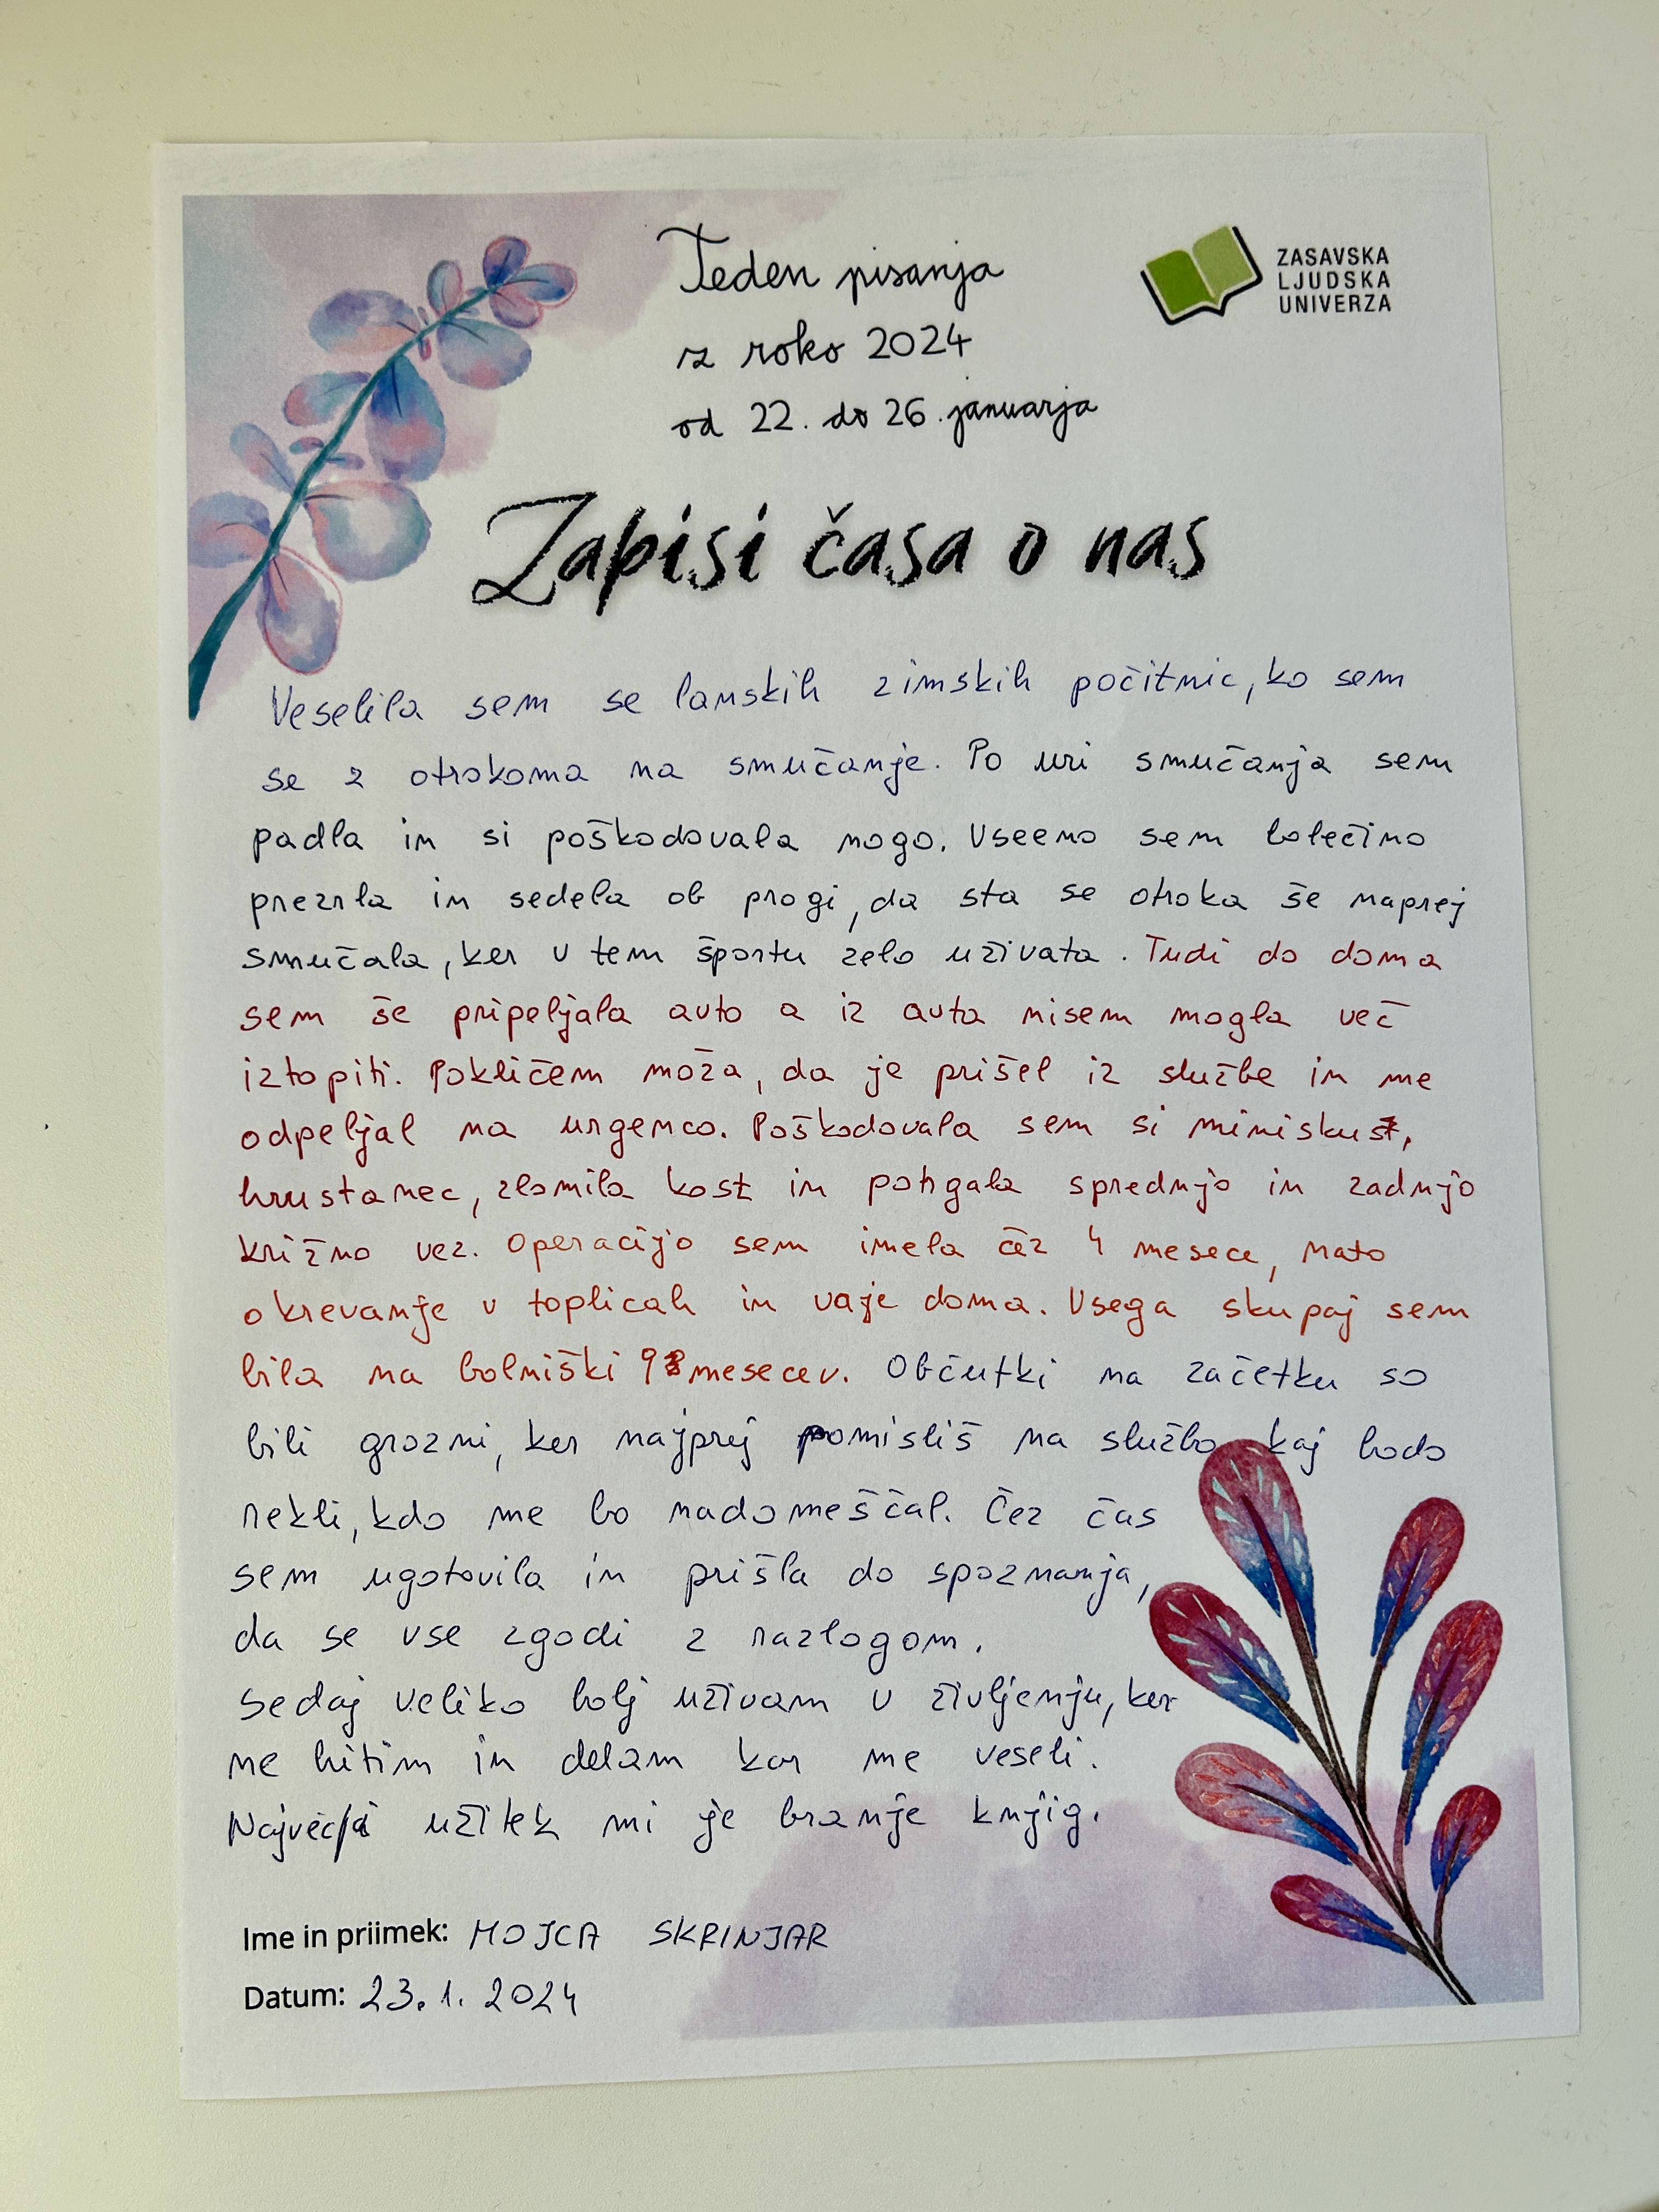 Teden pisanja
z roko 2024
od 22. do 26. januarja
ZASAVSKA
LJUDSKA
UNIVERZA
Zapisi časa o nas
Veselila sem se lanskih zimskih počitnic, ko sem
se z otrokoma na smučanje. Po uri smučanja sem
padla in si poškodovala nogo. Vseeno sem bolečino
prezrla in sedela ob progi, da sta se otroka še naprej
smučala, ker v tem športu zelo uživata. Tudi do doma
sem še pripeljala avto a iz avta nisem mogla več
iztopiti. Pokličem moža, da je prišel iz službe in me
odpeljal na urgenco. Poškodovala sem si miniskus,
hrustanec, zlomila kost in potrgala sprednjo in zadnjo
križno vez. Operacijo sem imela čez 4 mesece, nato
okrevanje v toplicah in vaje doma. Vsega skupaj sem
bila na bolniški 9 mesecev. Občutki na začetku so
bili grozni, ker najprej pomisliš na službo kaj bodo
rekli, kdo me bo nadomeščal. Čez čas
sem ugotovila in prišla do spoznanja,
da se vse zgodi z razlogom.
Sedaj veliko bolj uživam v življenju, ker
ne hitim in delam kar me veseli.
užitek mi je branje knjig.
Ime in priimek: MOJCA SKRINJAR
Datum: 23. 1. 2024